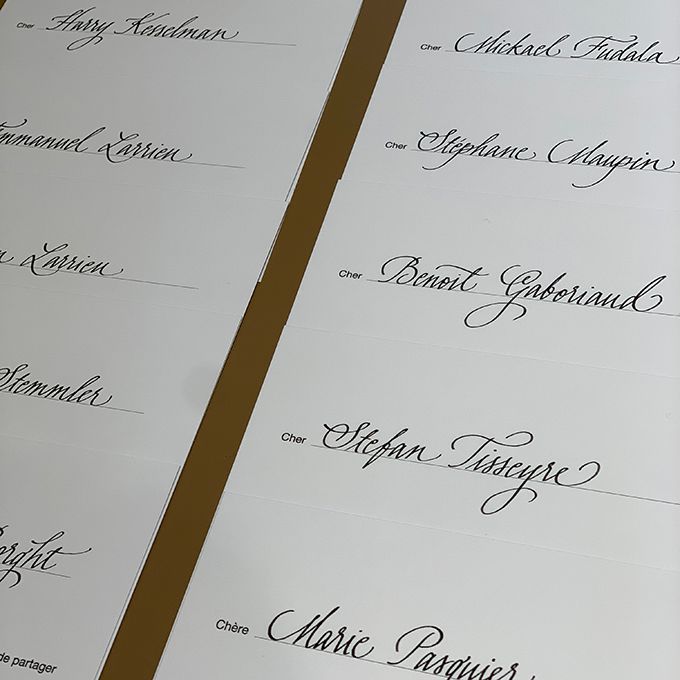 Cher Harry Kesselman
Emmanuel Larrieu
Larrieu
Stemmler
de partager
Cher Mickael Fudala
Cher Stéphane Maupin
Cher Benoit Gaboriaud
Cher Stefan Tisseyre
Chère Marie Pasquier